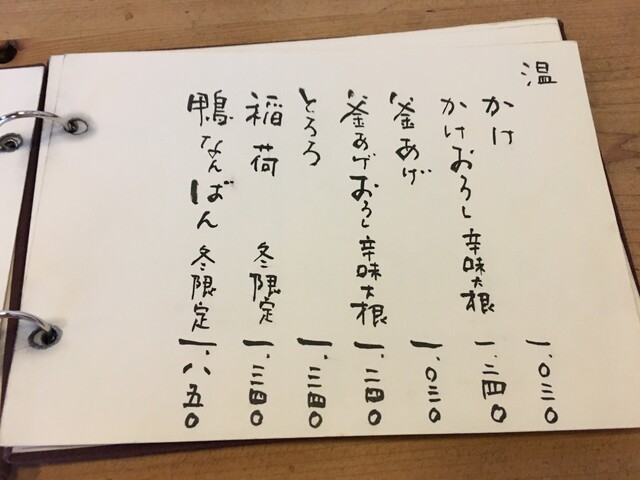 温
かけ 一.〇三〇
かけおろし 辛味大根 一.二四〇
釜あげ 一.〇三〇
釜あげおろし 辛味大根 一.二四〇
とろろ 一.三四〇
稲荷 冬限定 一.三四〇
鴨なんばん 冬限定 一.八五〇